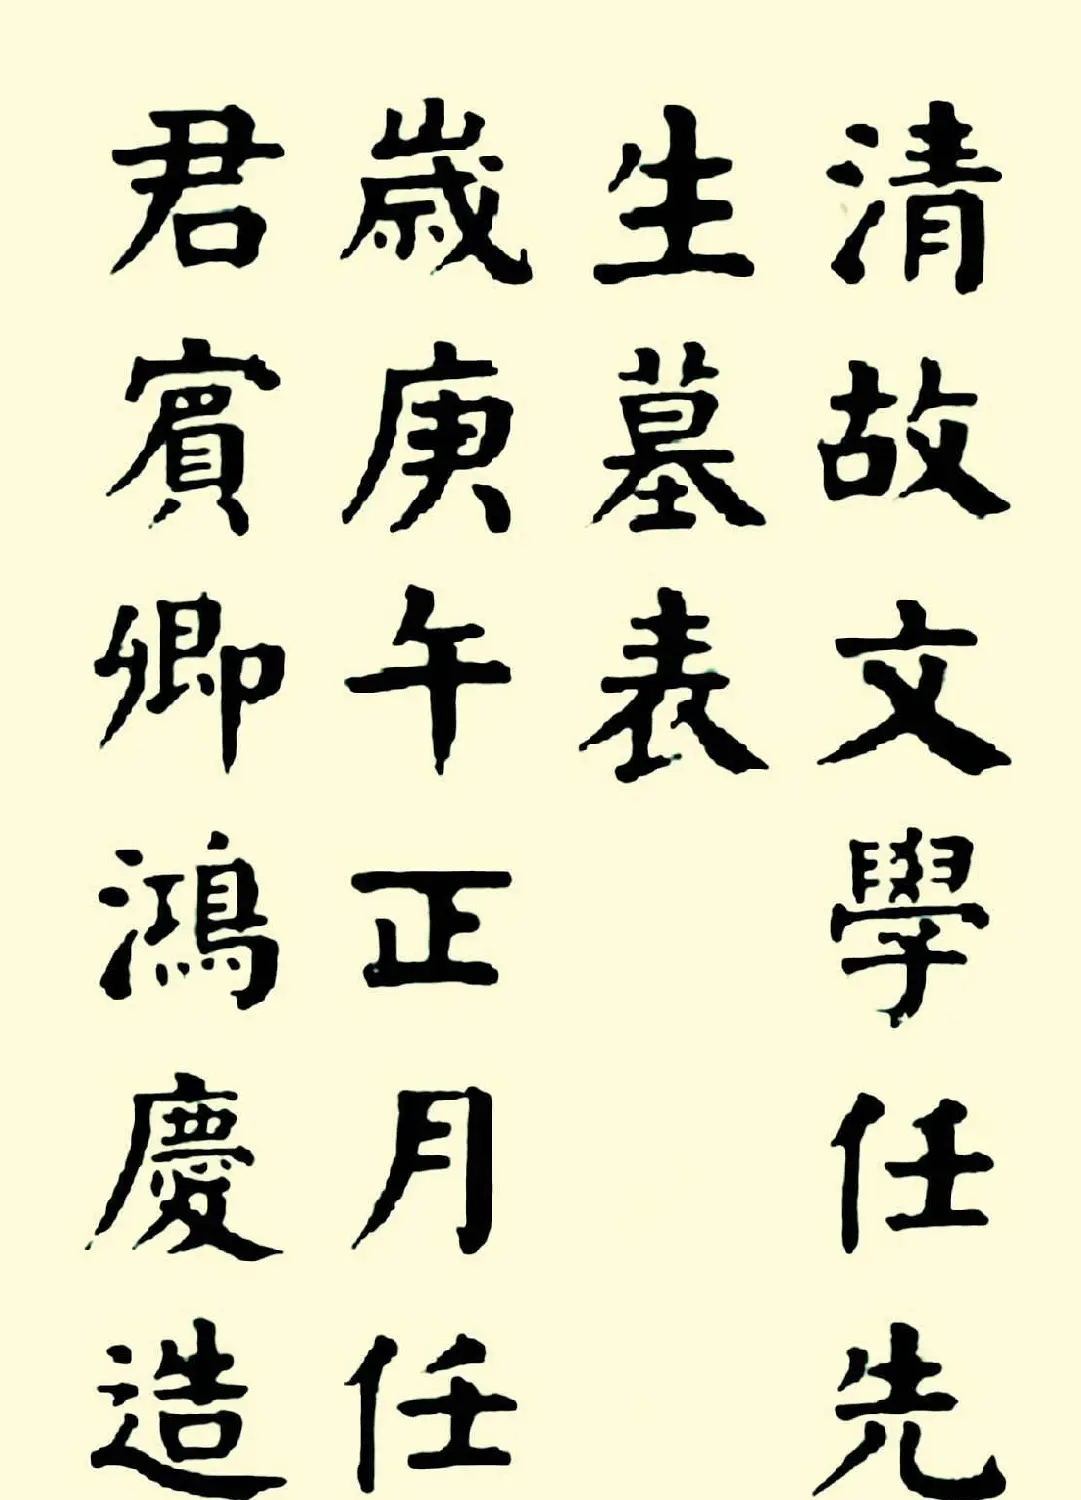 清故文學任先
生墓表
歲庚午正月任
君賓卿鴻慶造